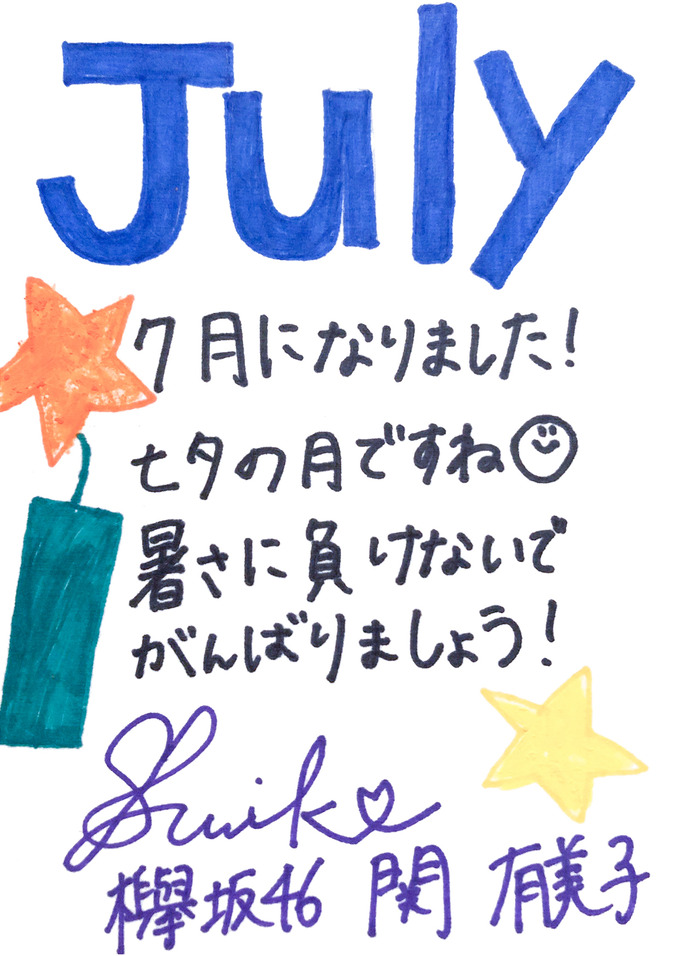 July
7月になりました!
七夕の月ですね
暑さに負けないで
がんばりましょう!
欅坂46 関 有美子